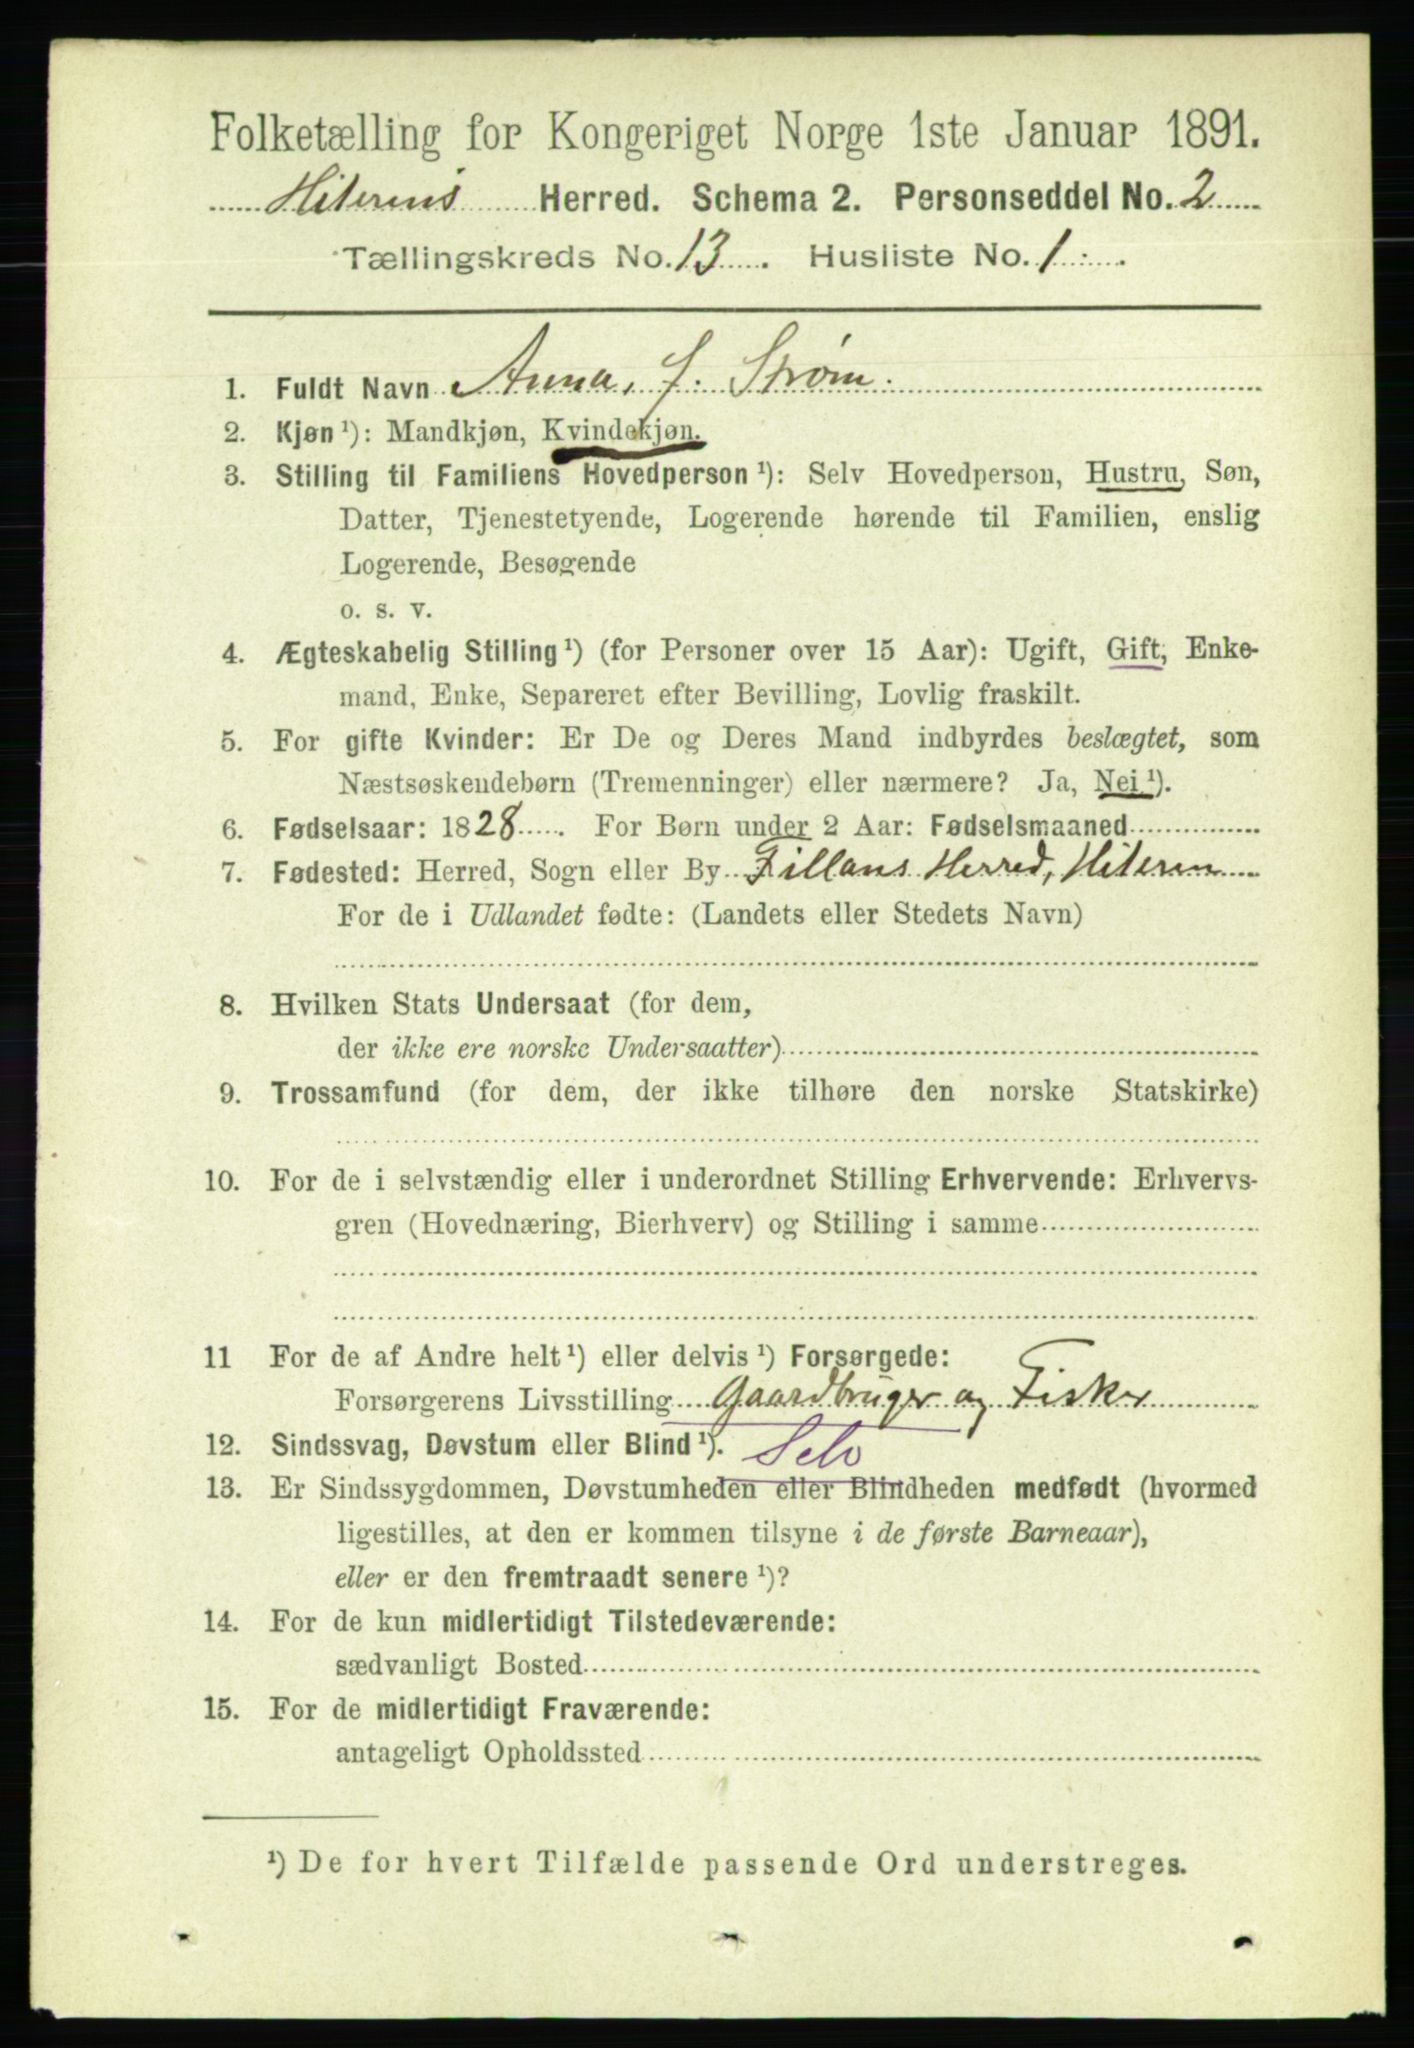 Folketælling for Kongeriget Norge 1ste Januar 1891.
Hiterens Herred. Schema 2. Personseddel No. 2
Tællingskreds No. 13. Husliste No. 1.
1. Fuldt Navn Anna. J. Strøm.
2. Kjøn ¹): Mandkjøn, Kvindekjøn.
3. Stilling til Familiens Hovedperson ¹): Selv Hovedperson, Hustru, Søn,
Datter, Tjenestetyende, Logerende hørende til Familien, enslig
Logerende, Besøgende
o. s. v.
4. Ægteskabelig Stilling ¹) (for Personer over 15 Aar): Ugift, Gift, Enke-
mand, Enke, Separeret efter Bevilling, Lovlig fraskilt.
5. For gifte Kvinder: Er De og Deres Mand indbyrdes beslægtet, som
Næstsøskendebørn (Tremenninger) eller nærmere? Ja, Nei ¹).
6. Fødselsaar: 1828. For Børn under 2 Aar: Fødselsmaaned
7. Fødested: Herred, Sogn eller By Fillans Herred, Hiteren
For de i Udlandet fødte: (Landets eller Stedets Navn)
8. Hvilken Stats Undersaat (for dem,
der ikke ere norske Undersaatter)
9. Trossamfund (for dem, der ikke tilhøre den norske Statskirke)
10. For de i selvstændig eller i underordnet Stilling Erhvervende: Erhvervs-
gren (Hovednæring, Bierhverv) og Stilling i samme
11 For de af Andre helt ¹) eller delvis ¹) Forsørgede:
Forsørgerens Livsstilling Gaardbruger og Fisker
12. Sindssvag, Døvstum eller Blind ¹). Selv
13. Er Sindssygdommen, Døvstumheden eller Blindheden medfødt (hvormed
ligestilles, at den er kommen tilsyne i de første Barneaar),
eller er den fremtraadt senere ¹)?
14. For de kun midlertidigt Tilstedeværende:
sædvanligt Bosted
15. For de midlertidigt Fraværende:
antageligt Opholdssted
¹) De for hvert Tilfælde passende Ord understreges.